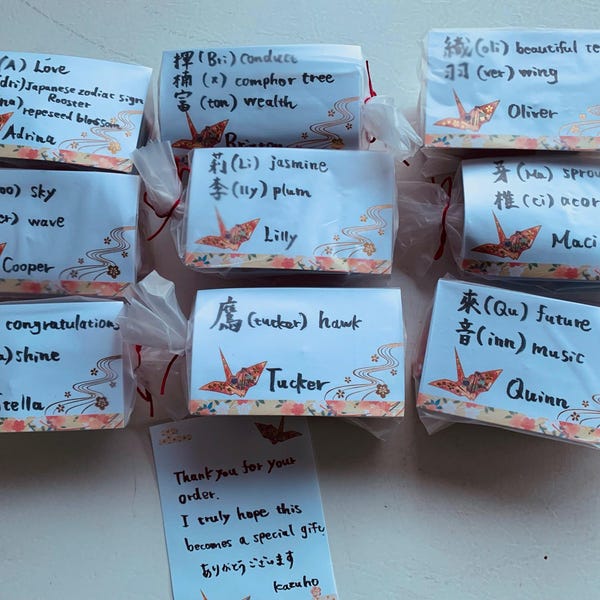 (A) Love
dri) Japanese zodiac sign
Rooster
na) repeseed blossom
Adrina
揮 (Bri) conduct
楠 (x) comphor tree
富 (ton) wealth
織 (oli) beautiful te
羽 (ver) wing
Oliver
oo) sky
er) wave
Cooper
莉 (Li) jasmine
李 (lly) plum
Lilly
芽 (Ma) sprou
椎 (ci) acor
Maci
congratulations
a) shine
tella
鷹 (tucker) hawk
Tucker
來 (Qu) future
音 (inn) music
Quinn
Thank you for your
order.
I truly hope this
becomes a special gift.
ありがとうございます
Kazuho